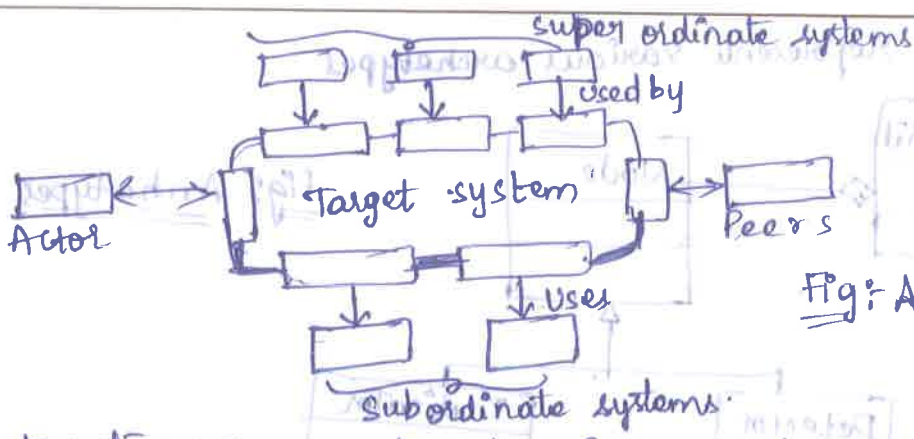 super ordinate systems
used by
Target system
Actor
Peers
Fig:- A
Uses
Subordinate systems.